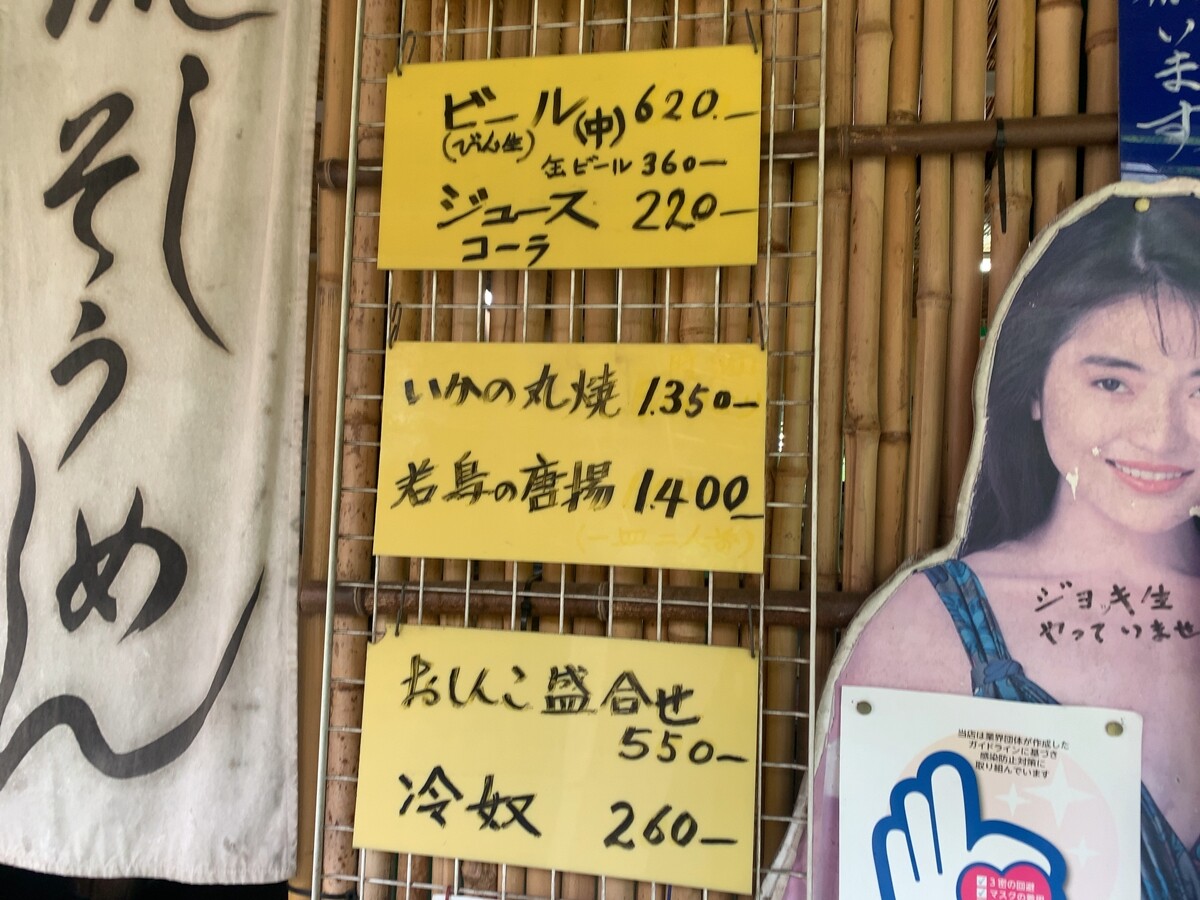 流しそうめん
ビール(中)620.—
(びん生)
缶ビール 360—
ジュース 220—
コーラ
いかの丸焼 1.350—
若鳥の唐揚 1.400—
おしんこ盛合せ
550—
冷奴 260—
います
ジョッキ生
やっていませ
当店は業界団体が作成した
ガイドラインに基づき
感染防止対策に
取り組んでいます
3密の回避